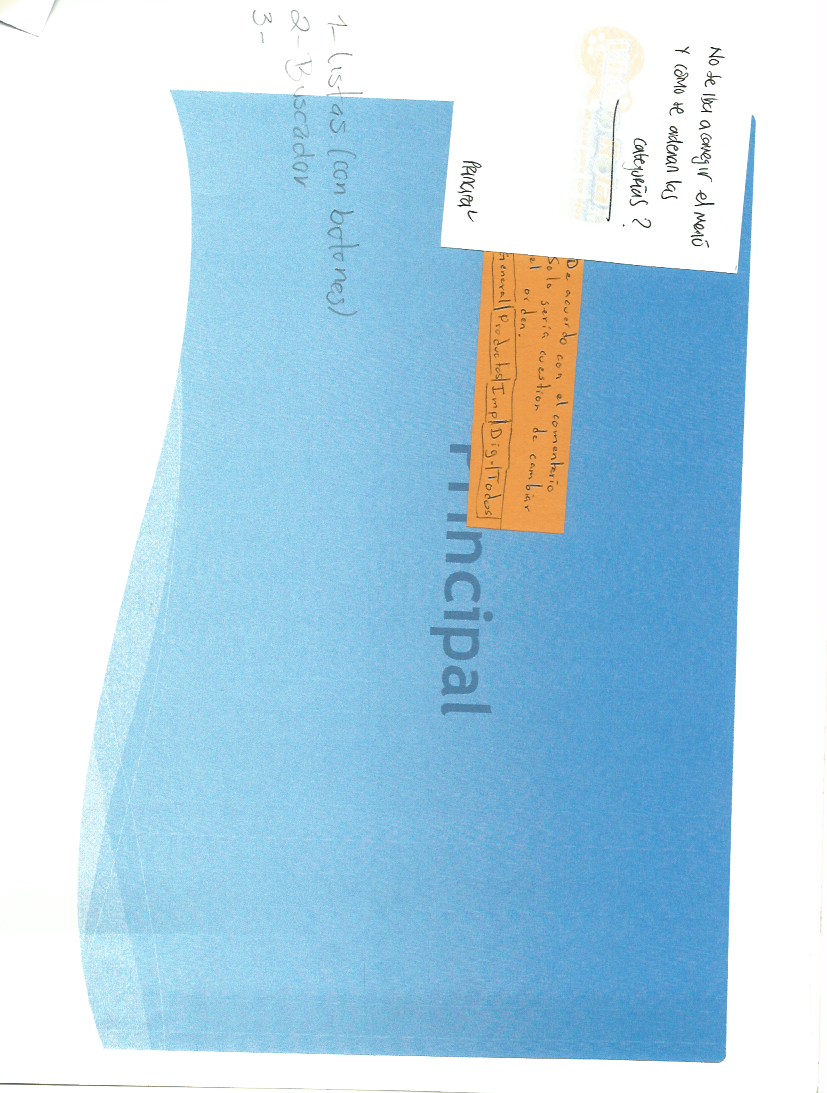 No se iba a corregir el menú
y cómo se ordenan las
categorías?
PRINCIPAL
De acuerdo con el comentario
Solo sería cuestion de cambiar
el orden.
General|Productos|Imp|Dig.|Todos|
Principal
1- Listas (con botones)
2- Buscador
3-